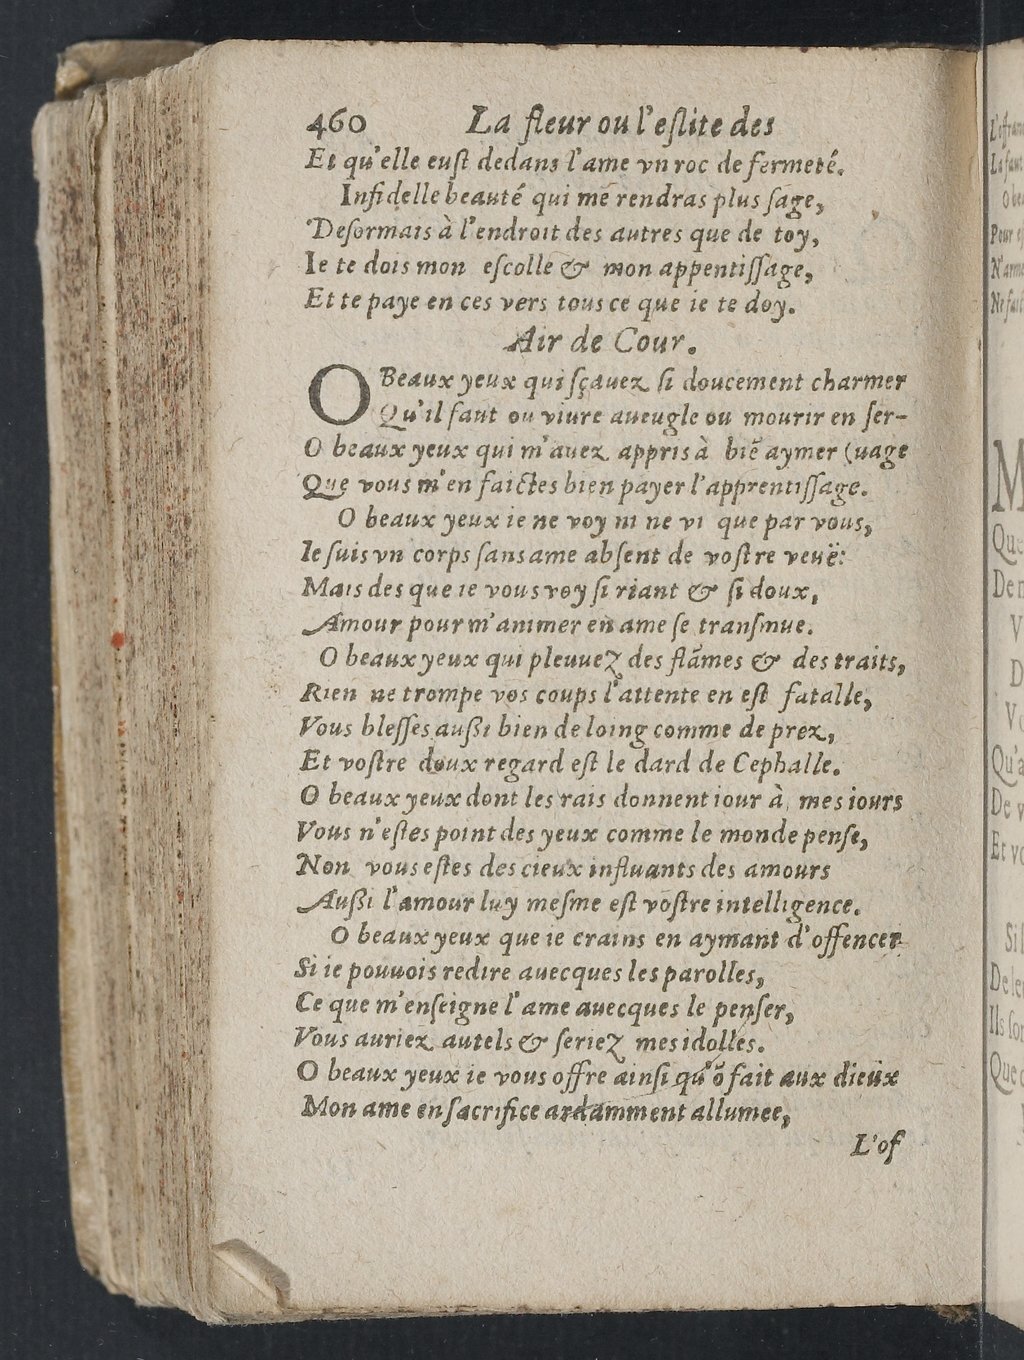 460 La fleur ou l'eſlite des
Et qu'elle euſt dedans l'ame vn roc de fermeté.
Infidelle beauté qui me rendras plus ſage,
Deſormais à l'endroit des autres que de toy,
Ie te dois mon eſcolle & mon appentiſſage,
Et te paye en ces vers tous ce que ie te doy.
Air de Cour.
O Beaux yeux qui ſçauez ſi doucement charmer
Qu'il faut ou viure aueugle ou mourir en ſer-
O beaux yeux qui m'auez appris à biē aymer (uage
Que vous m'en faictes bien payer l'apprentiſſage.
O beaux yeux ie ne voy ni ne vi que par vous,
Ie ſuis vn corps ſans ame abſent de voſtre veuë:
Mais des que ie vous voy ſi riant & ſi doux,
Amour pour m'animer en ame ſe tranſmue.
O beaux yeux qui pleuuez des flāmes & des traits,
Rien ne trompe vos coups l'attente en eſt fatalle,
Vous bleſſes außi bien de loing comme de prez,
Et voſtre doux regard eſt le dard de Cephalle.
O beaux yeux dont les rais donnent iour à mes iours
Vous n'eſtes point des yeux comme le monde penſe,
Non vous eſtes des cieux influants des amours
Außi l'amour luy meſme eſt voſtre intelligence.
O beaux yeux que ie crains en aymant d'offencer
Si ie pouuois redire auecques les parolles,
Ce que m'enſeigne l'ame auecques le penſer,
Vous auriez autels & ſeriez mes idolles.
O beaux yeux ie vous offre ainſi qu'ō fait aux dieux
Mon ame en ſacrifice ardamment allumee,
L'of